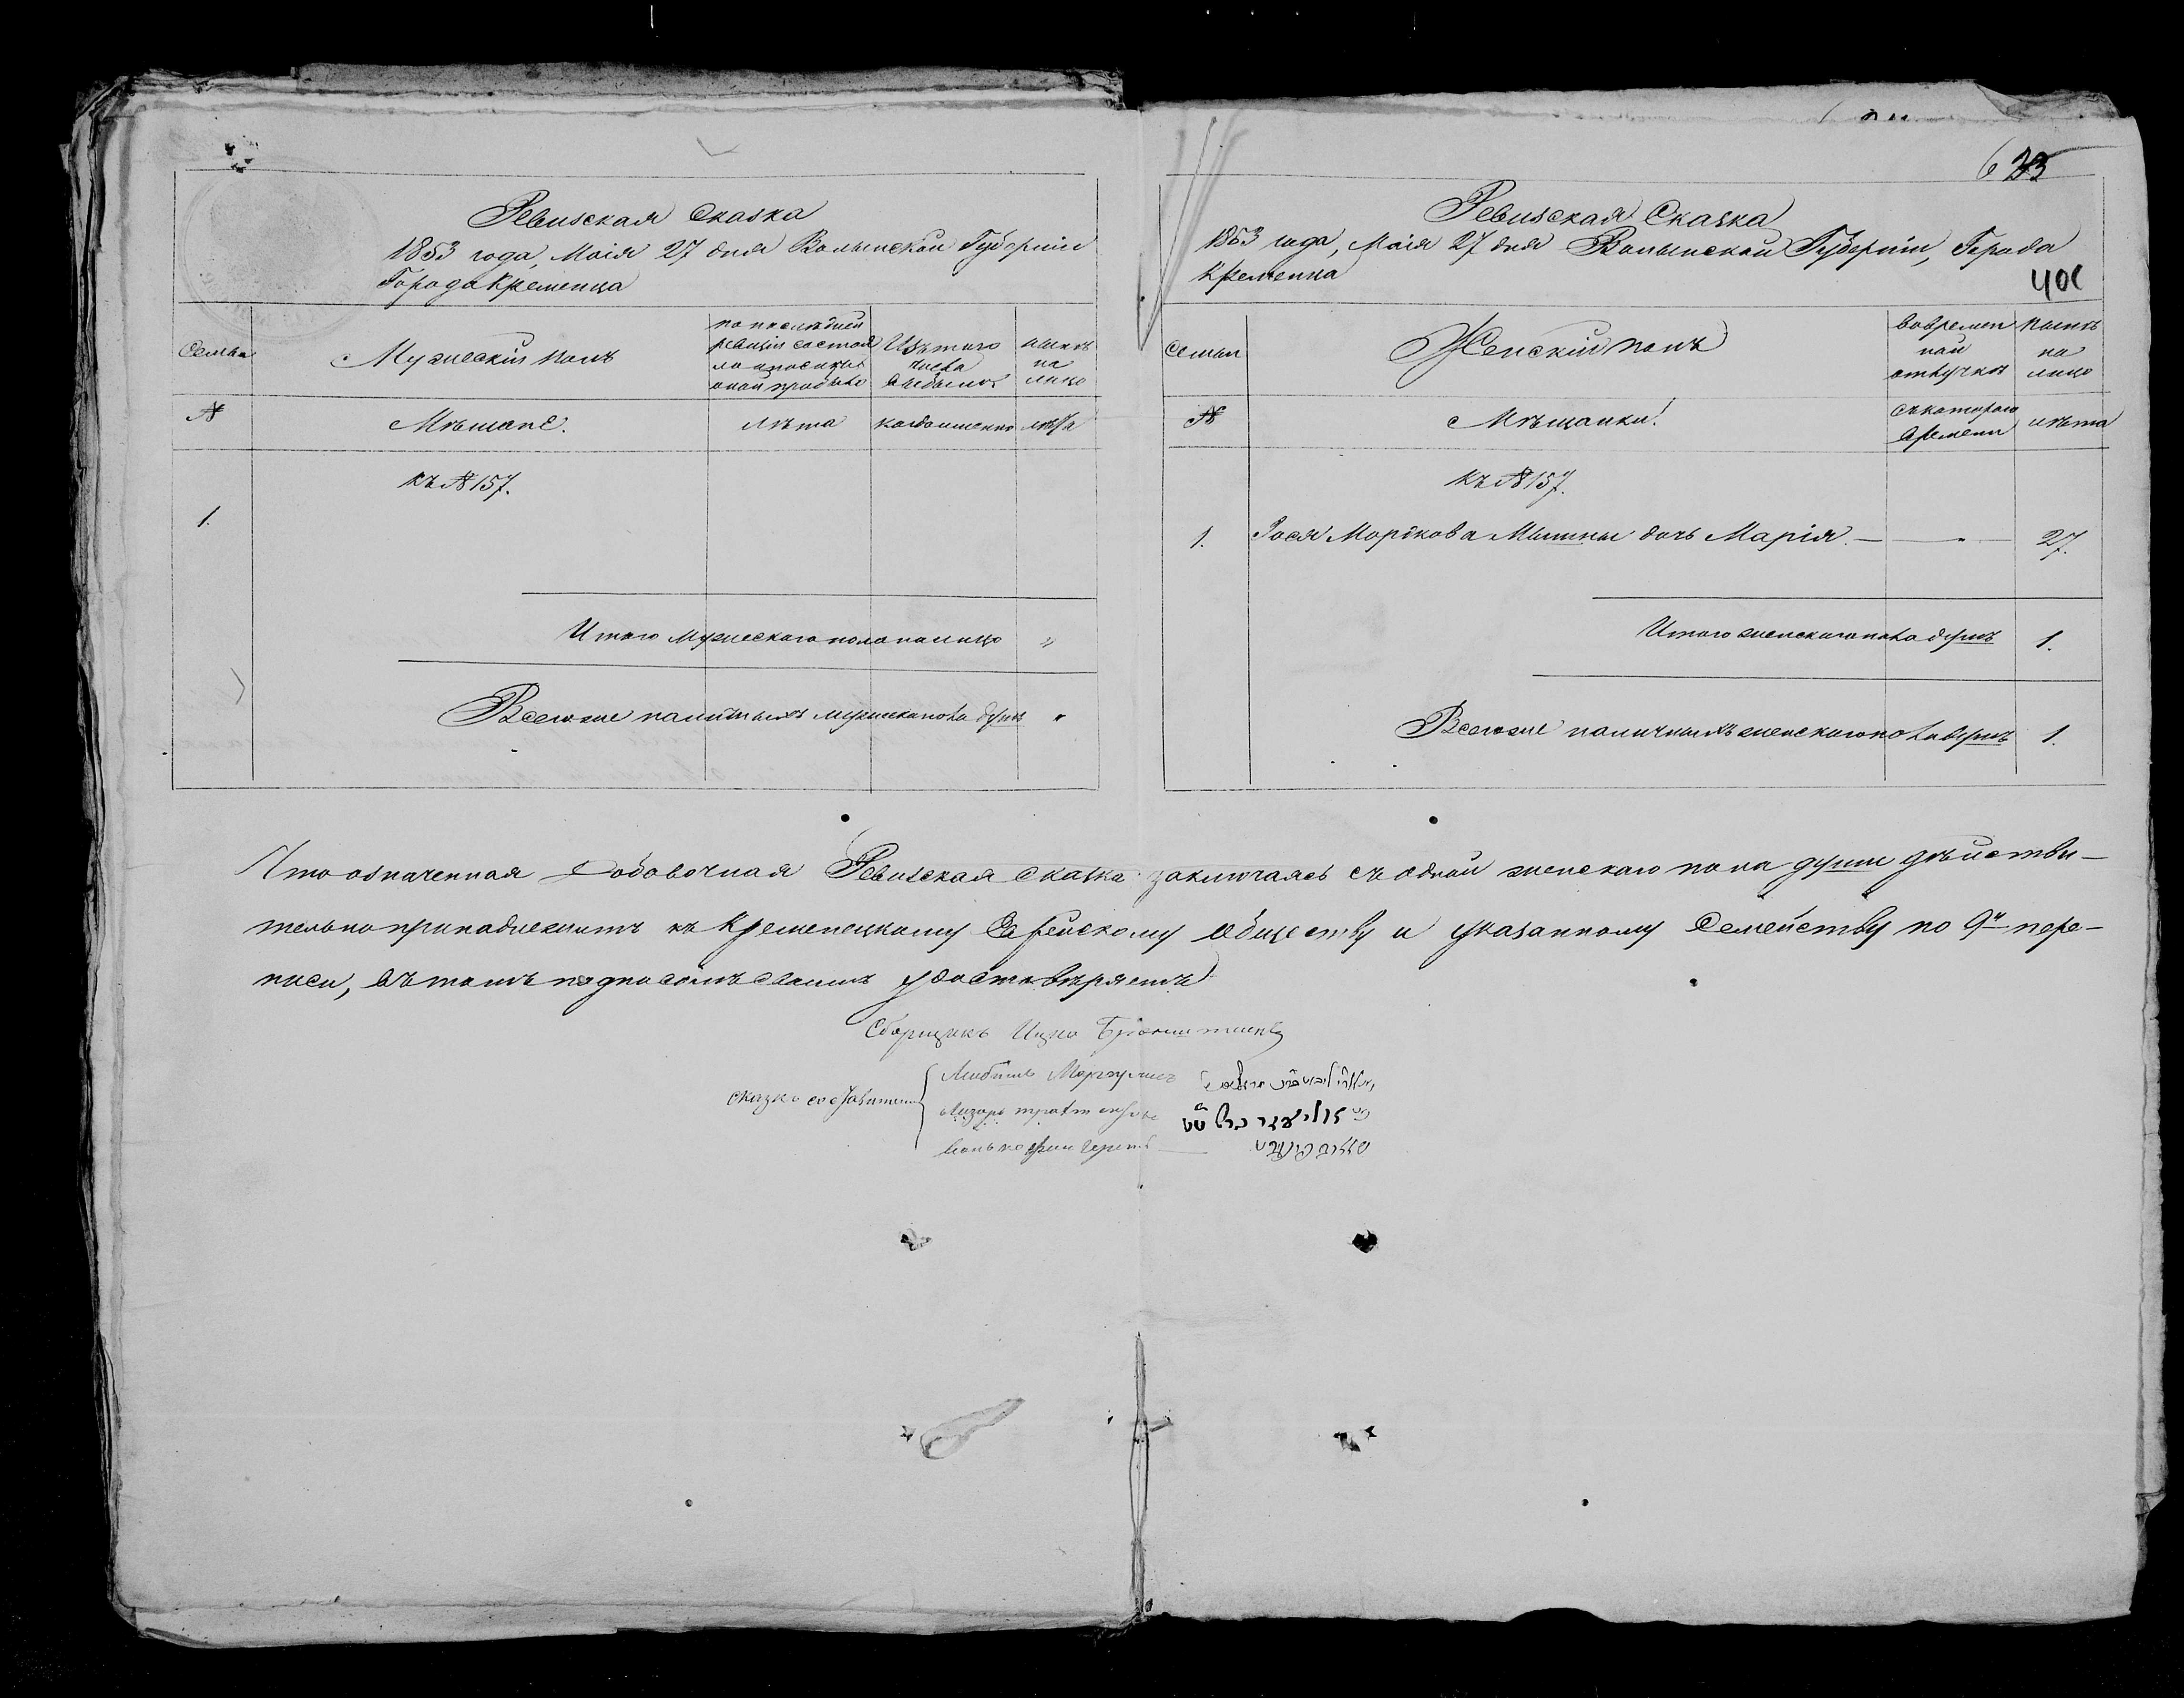 Ревизская Сказка
1853 года, Маія 27 дня Волынской Губерніи
Города Кременца
Семьи
Мужескій полъ
по последней ревизіи состояло и после оной прибыло
Изъ того числа выбыло
ныне на лицо
№
Мѣщане.
лѣта
когда именно
лѣта
къ № 157.
1.
Итого мужескаго пола на лицо "
Всего же наличныхъ мужеска пола душъ "
623
Ревизская Сказка
1853 года, Маія 27 дня Волынской Губерніи, Города
Кременца
401
Семьи
Женскій полъ
во временной отлучкѣ
ныне на лицо
№
Мѣщанки.
съ котораго времени
лѣта
къ № 157.
1. Рося Моркова дочь Марія — " — 27.
Итого женскаго пола душъ 1.
Всего же наличныхъ женскаго пола душъ 1.
Что означенная добавочная Ревизская сказка заключаясь съ одной женскаго пола души действи-
тельно принадлежитъ къ Кременецкому Еврейскому обществу и указанному Семейству по 9й пере-
писи, въ томъ подписомъ своимъ удостоверяетъ
Сборщикъ Ицко
Сказко составители
Маргулисъ
Лизоръ